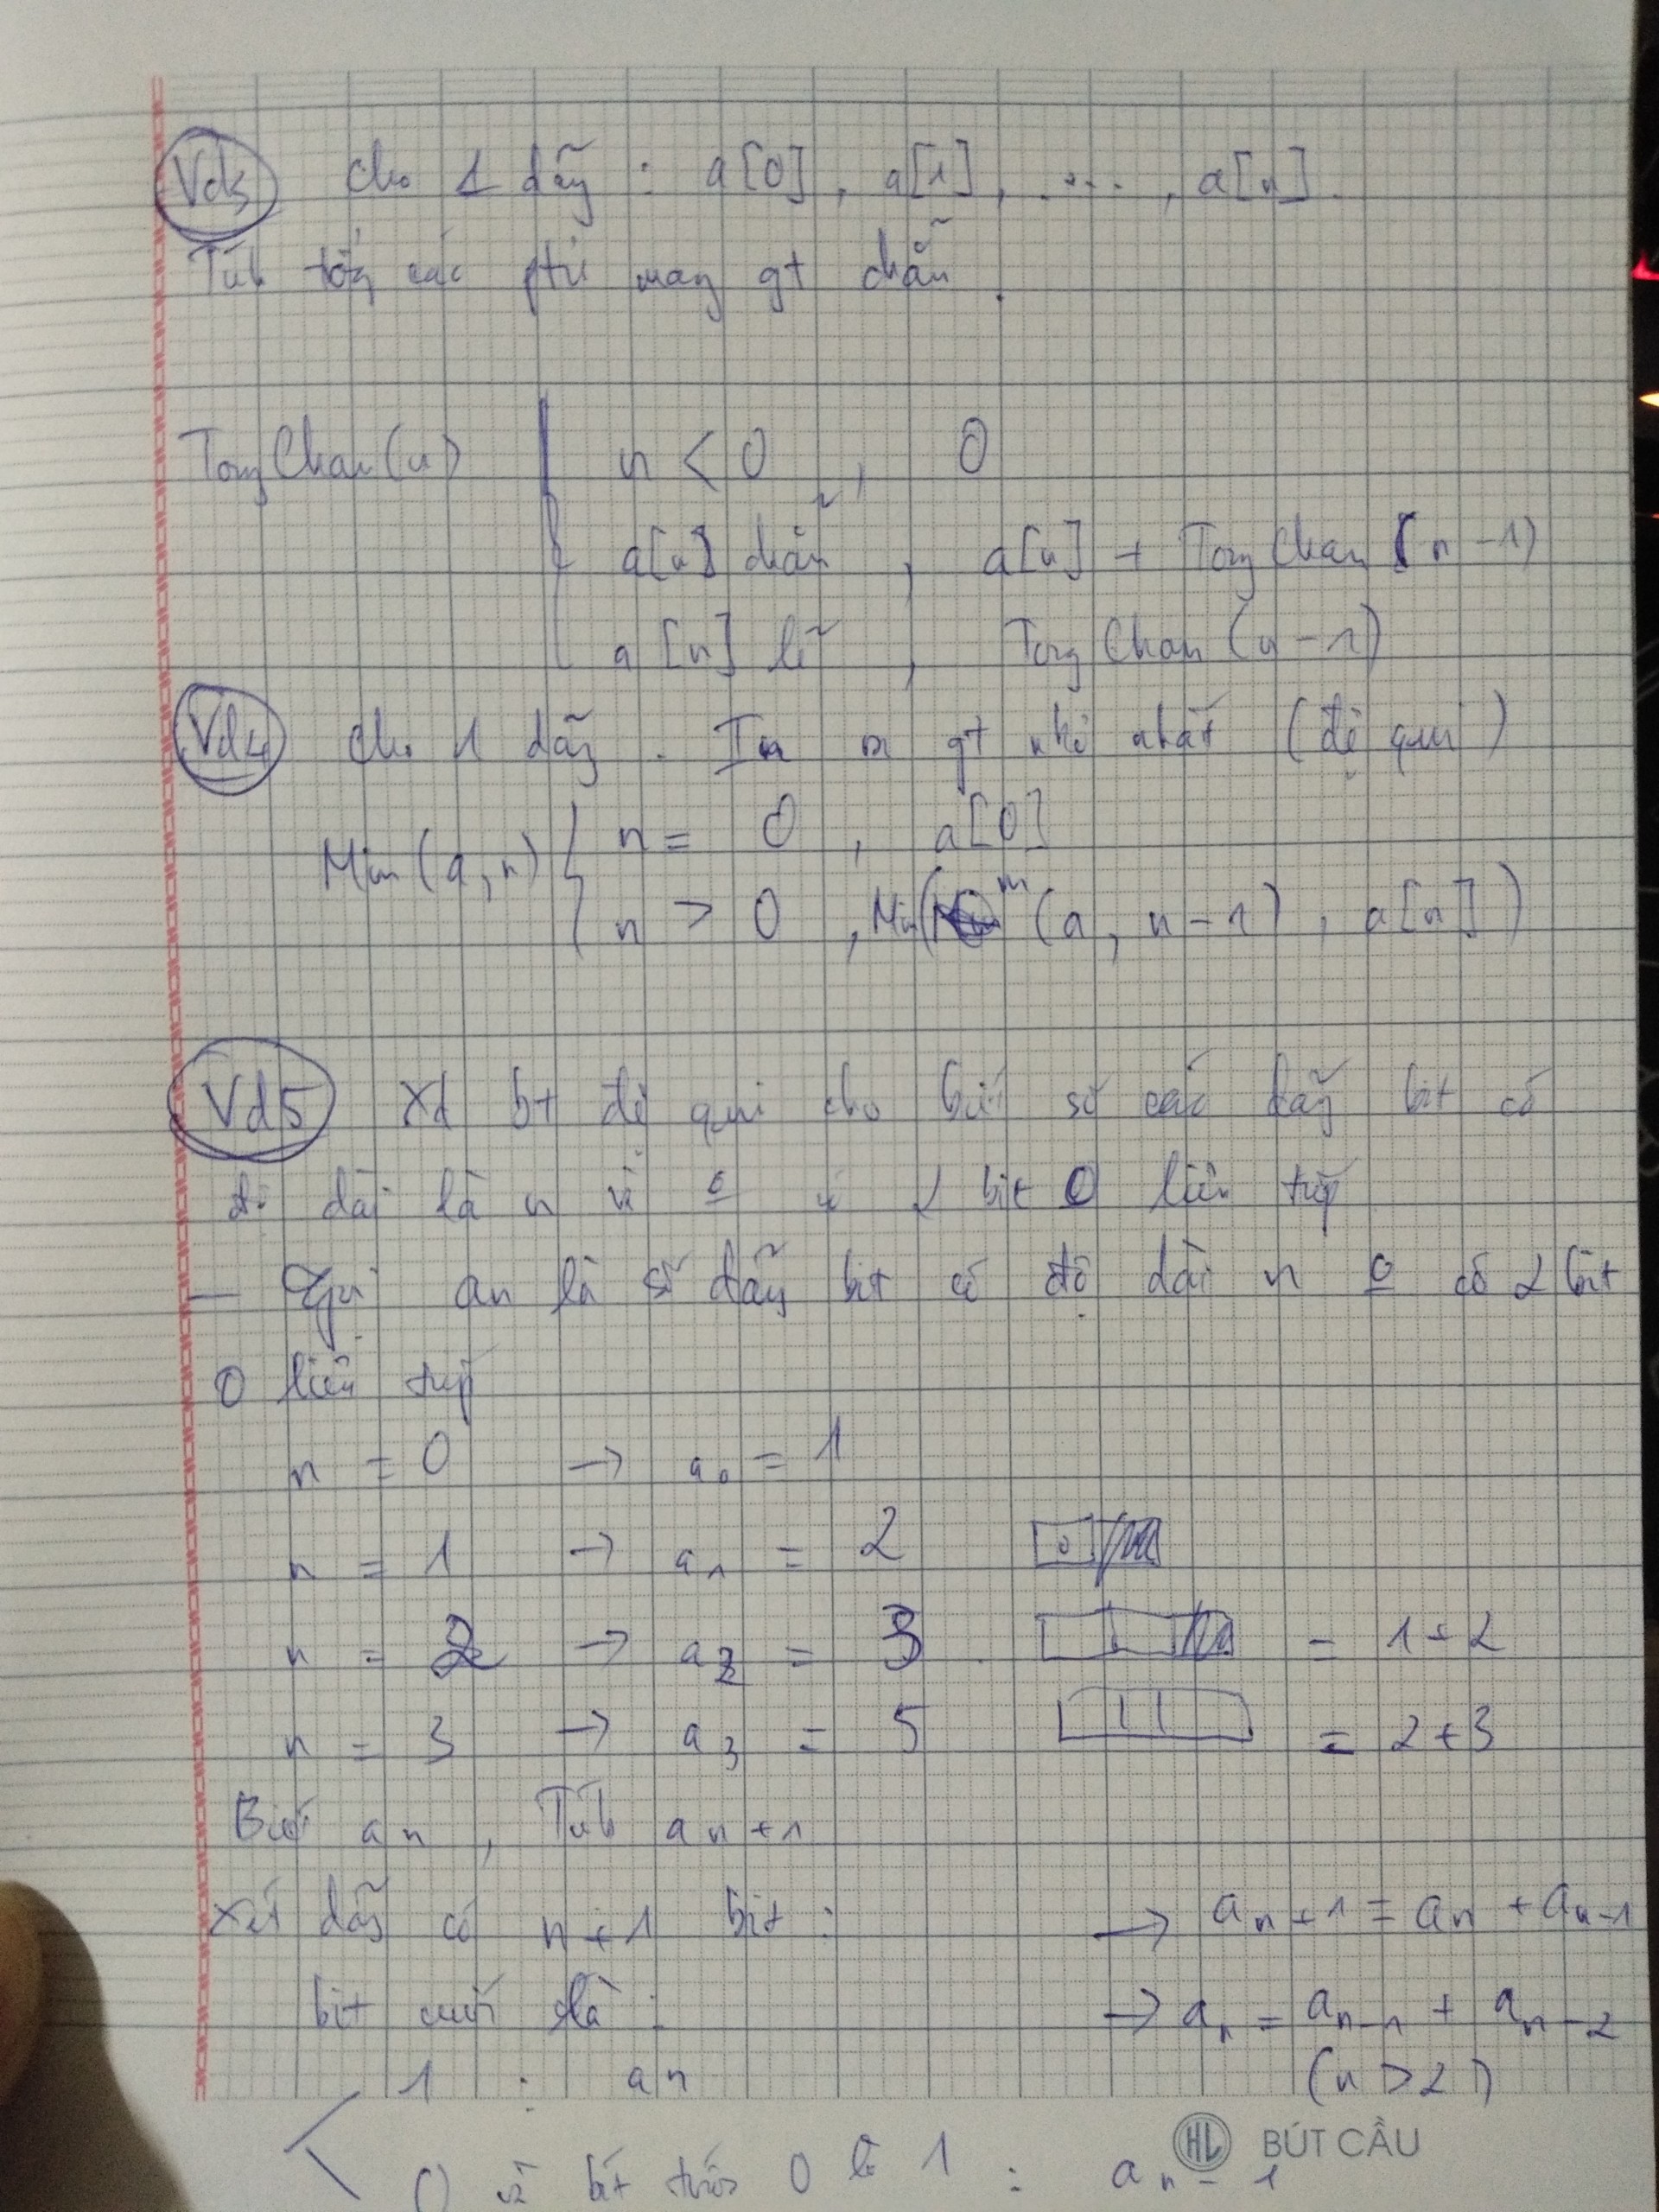 Vd3 Cho 1 dãy : a[0], a[1], ...., a[n].
Tính tổng các ptử mang gt chẵn.
TongChan(n) { n < 0 , 0
a[n] chẵn , a[n] + TongChan(n-1)
a[n] lẽ , TongChan(n-1)
Vd4 Cho 1 dãy . Tìm gt nhỏ nhất (đệ qui)
Min(a,n) { n = 0 , a[0]
n > 0 , Min( (a, n-1) , a[n])
Vd5 Xd bt đệ qui cho biết số các dãy bit có
độ dài là n và 2 bit 0 liên tiếp
- Gọi an là số dãy bit có độ dài n có 2 bit
0 liên tiếp
n = 0 → a0 = 1
n = 1 → a1 = 2 0
n = 2 → a2 = 3 = 1+2
n = 3 → a3 = 5 = 2+3
Biết an , Tính an+1
Xét dãy có n+1 bit : → an+1 = an + an-1
bit cuối là : → an = an-1 + an-2
1 : an (n > 2)
HL BÚT CẦU
0 và bít trước 0 là 1 : an-1